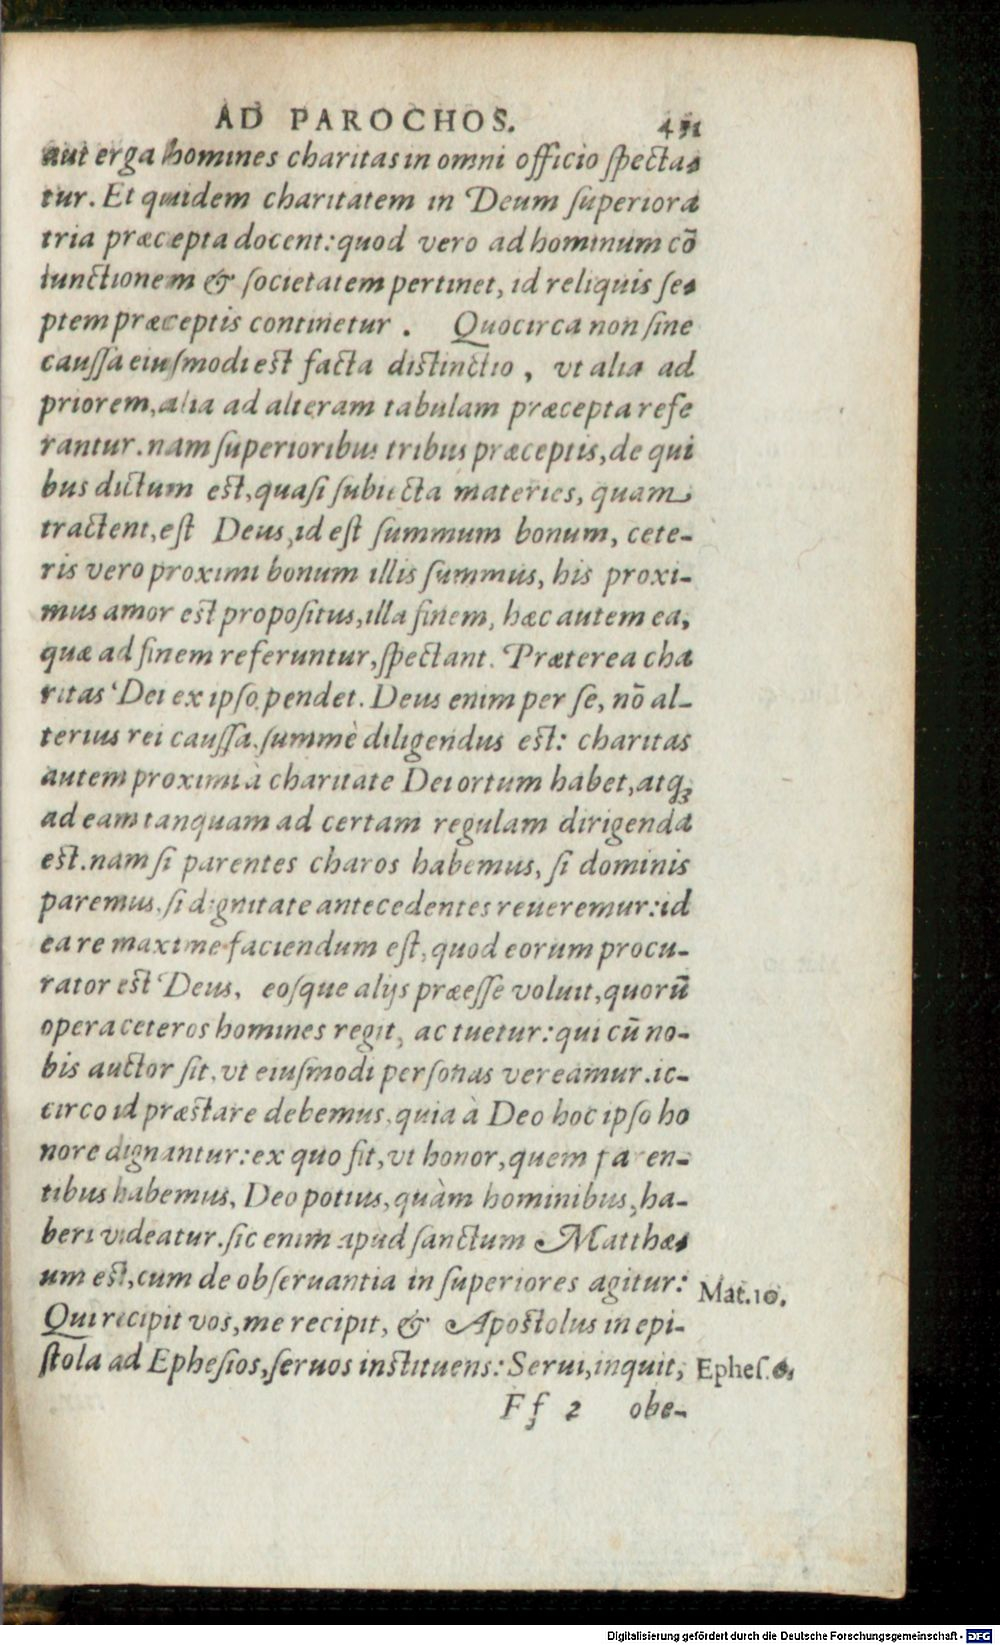 AD PAROCHOS. 451
aut erga homines charitas in omni officio specta-
tur. Et quidem charitatem in Deum superiora
tria præcepta docent: quod vero ad hominum cō
iunctionem & societatem pertinet, id reliquis se-
ptem præceptis continetur. Quocirca non sine
caussa eiusmodi est facta distinctio, vt alia ad
priorem, alia ad alteram tabulam præcepta refe
rantur. nam superioribus tribus præceptis, de qui
bus dictum est, quasi subiecta materies, quam
tractent, est Deus, id est summum bonum, cete-
ris vero proximi bonum illis summus, his proxi-
mus amor est propositus, illa finem, hæc autem ea,
quæ ad finem referuntur, spectant. Præterea cha
ritas Dei ex ipso pendet. Deus enim per se, nō al-
terius rei caussa, summè diligendus est: charitas
autem proximi à charitate Dei ortum habet, atq;
ad eam tanquam ad certam regulam dirigenda
est. nam si parentes charos habemus, si dominis
paremus, si dignitate antecedentes reueremur: id
ea re maxime faciendum est, quod eorum procu-
rator est Deus, eosque alijs præesse voluit, quorū
opera ceteros homines regit, ac tuetur: qui cū no-
bis auctor sit, vt eiusmodi personas vereamur. ic-
circo id præstare debemus, quia à Deo hoc ipso ho
nore dignantur: ex quo fit, vt honor, quem paren-
tibus habemus, Deo potius, quàm hominibus, ha-
beri videatur. sic enim apud sanctum Matthæ-
um est, cum de obseruantia in superiores agitur:
Mat.10.
Qui recipit vos, me recipit, & Apostolus in epi-
stola ad Ephesios, seruos instituens: Serui, inquit,
Ephes.6.
Ff 2 obe-
Digitalisierung gefördert durch die Deutsche Forschungsgemeinschaft - DFG